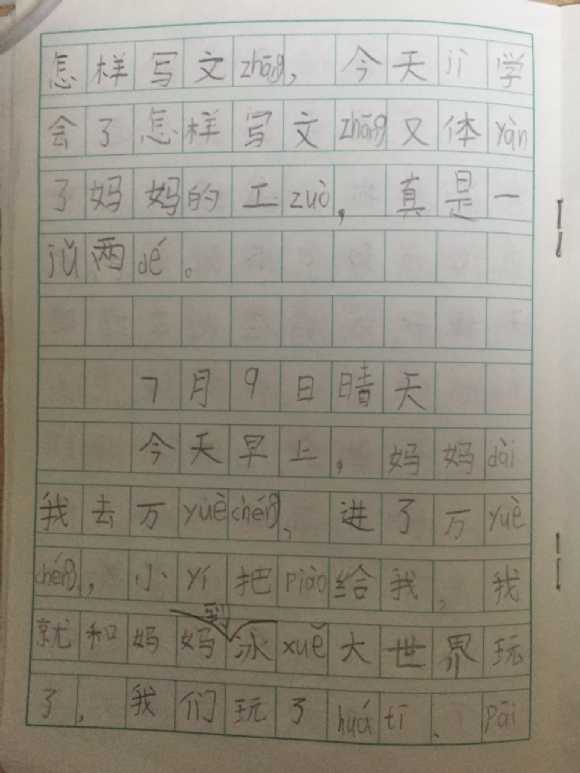 怎样写文zhāng，今天jì学
会了怎样写文zhāng又体yàn
了妈妈的工zuò，真是一
jǔ两dé。
7月9日晴天
今天早上，妈妈dài
我去万yuèchéng，进了万yuè
chéng，小yí把piào给我，我
就和妈妈到冰xuě大世界玩
了，我们玩了huátī、pāi